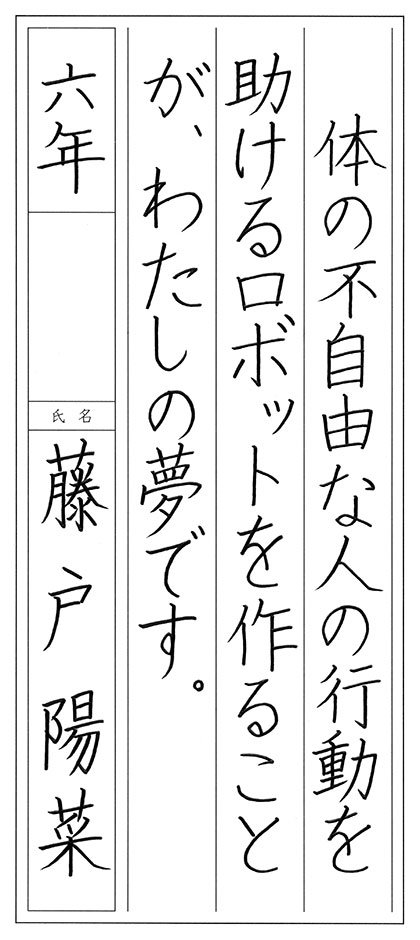 体の不自由な人の行動を
助けるロボットを作ること
が、わたしの夢です。
六年
氏名
藤戸陽菜